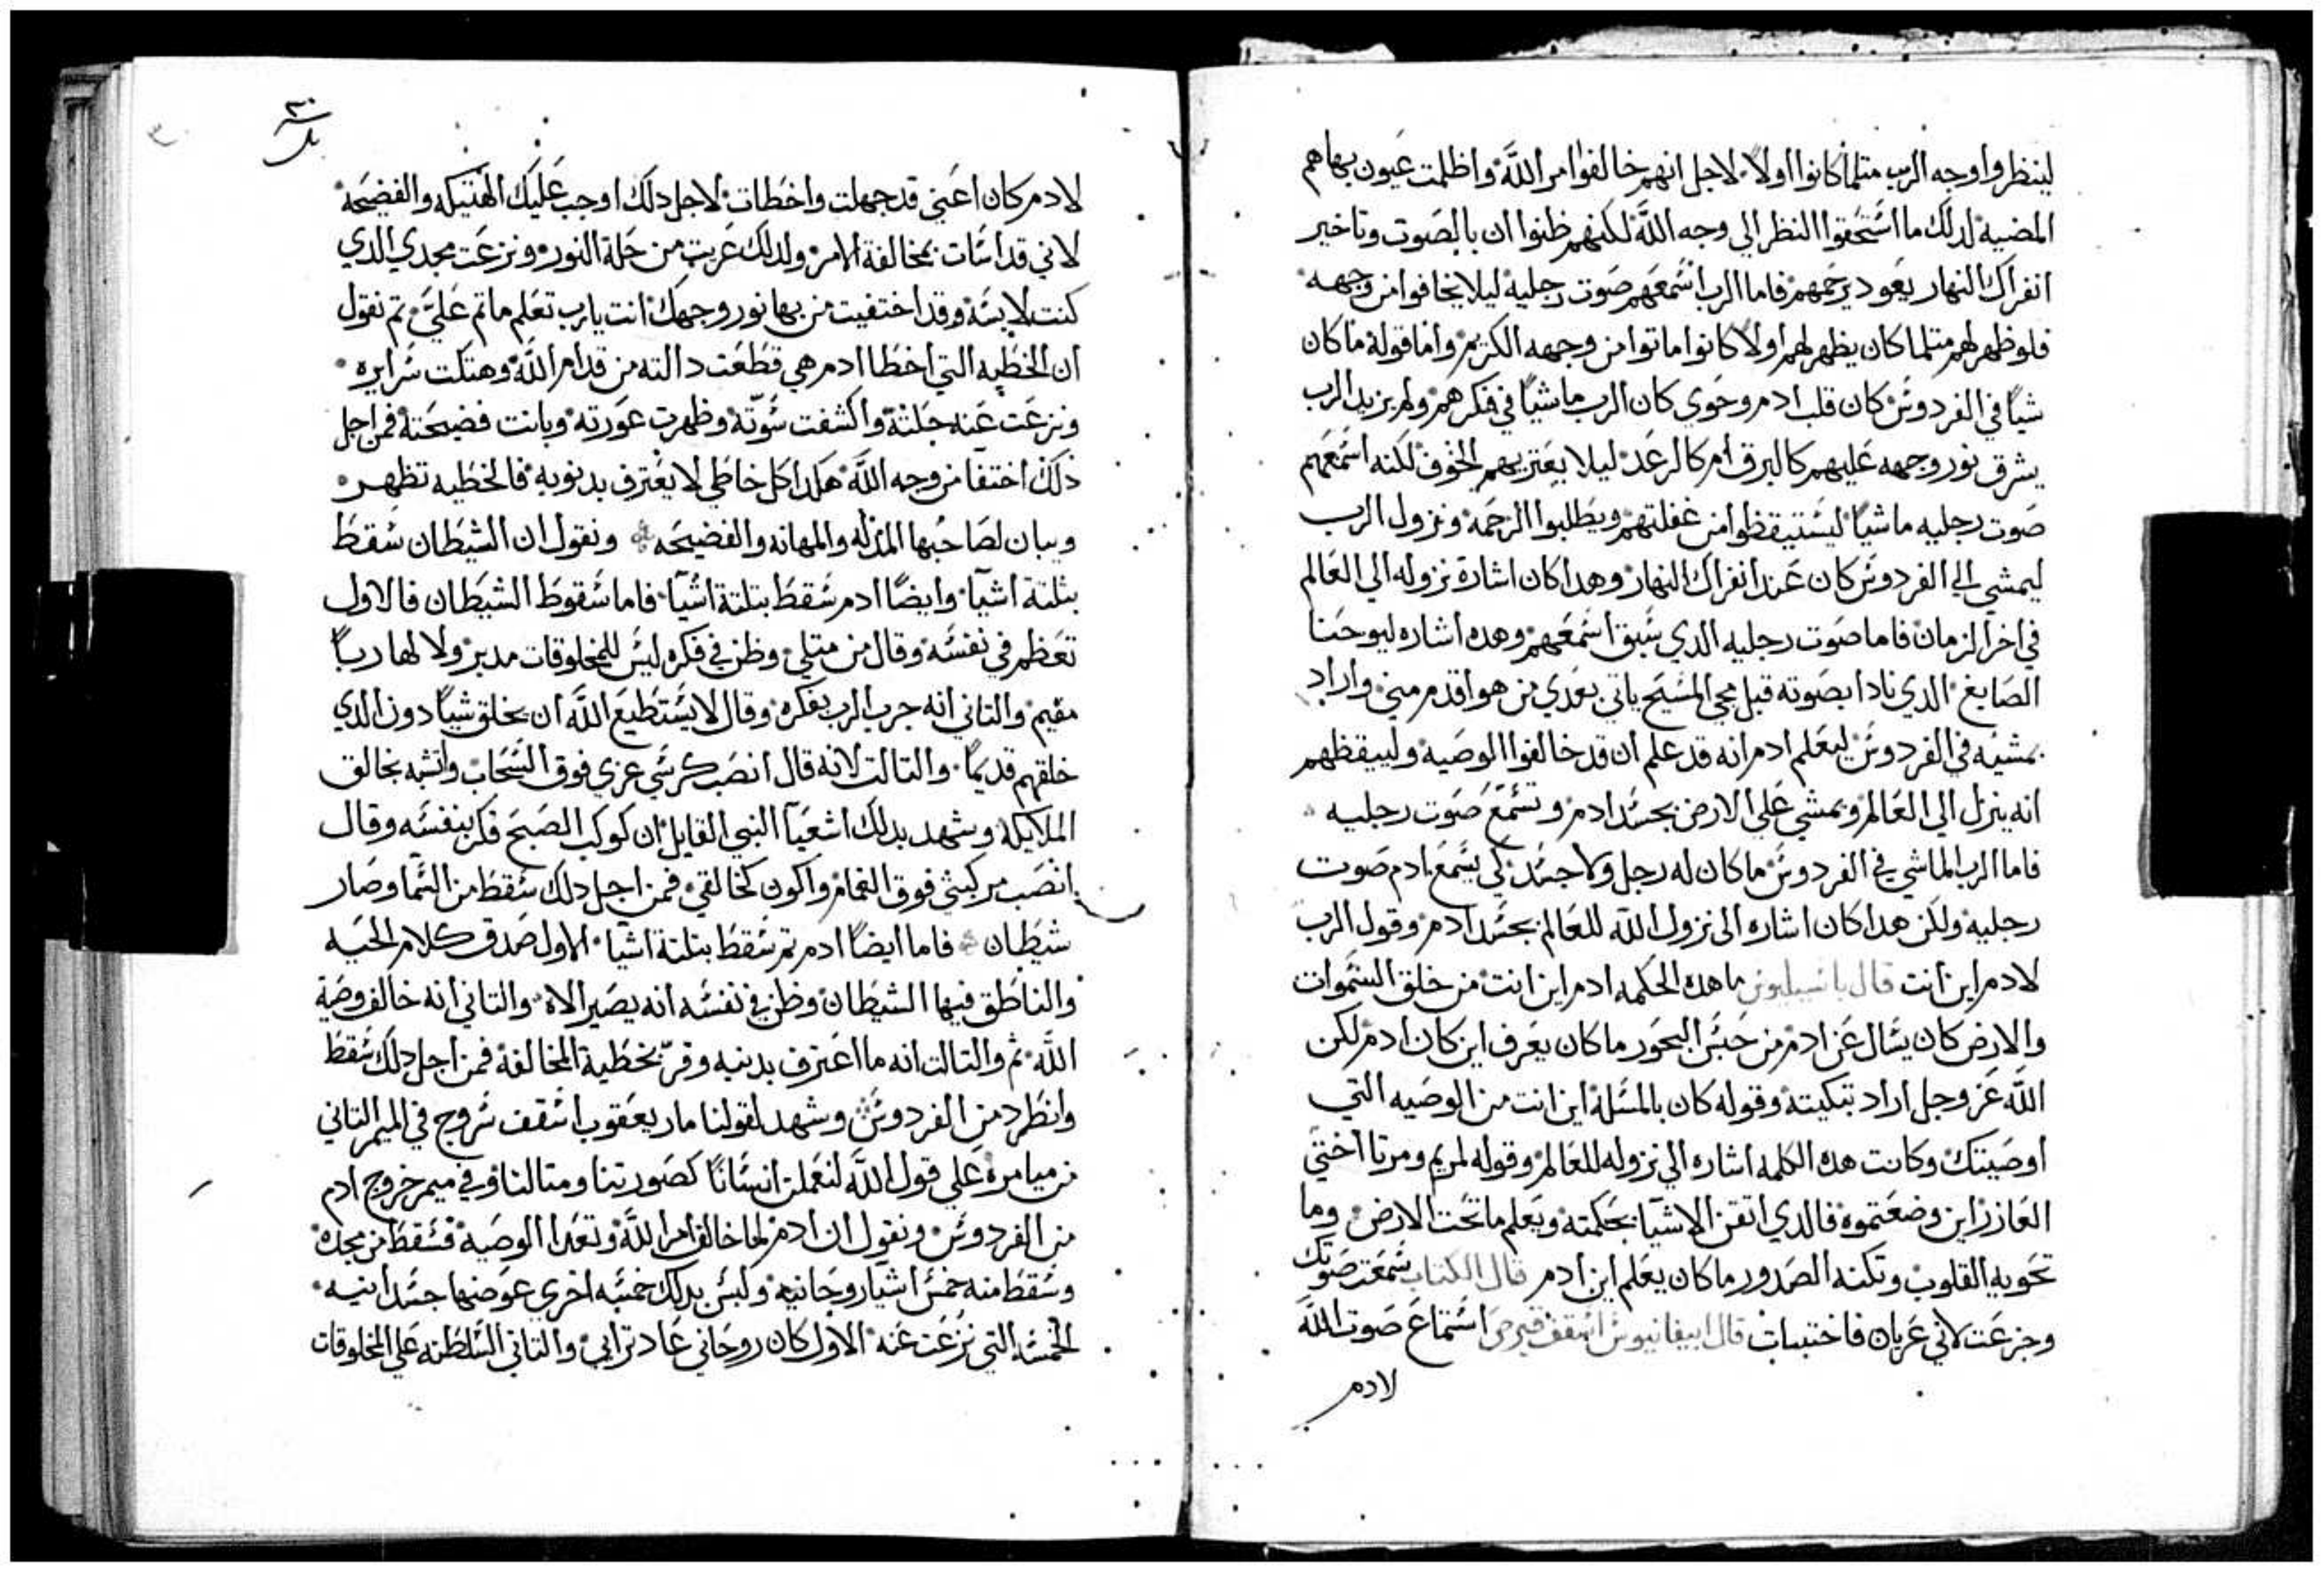 لينظروا وجه الرب متلما كانوا اولاً لاجل انهم خالفوا امر اللَّه واظلمت عيون بهاهم
المضيه لدلك ما استحقوا النظر الي وجه اللَّه لكنهم ظنوا ان بالصوت وتاخير
انفراك النهار يعود يرحمهم فاما الرب اسمعهم صوت رجليه ليلا يخافوا من وجهه
فلو ظهر لهم متلما كان يظهر لهم اولا كانوا ماتوا من وجهه الكريم واما قوله ماكان
شياً في الفردوس كان قلب ادم وحوي كان الرب ماشياً في فكرهم ولم يريد الرب
يشرق نور وجهه عليهم كالبرق ام كالرعد ليلا يعتريهم الخوف لكنه اسمعهم
صوت رجليه ماشياً ليستيقظوا من غفلتهم ويطلبوا الرحمة ونزول الرب
ليمشي الي الفردوس كان عند انفراك النهار وهدا كان اشارة نزوله الي العالم
في اخر الزمان فاما صوت رجليه الدي سبق اسمعهم وهده اشاره ليوحنا
الصابغ الدي نادا بصوته قبل مجي المسيح ياتي بعدي من هو اقدم مني واراد
بمشيه في الفردوس ليعلم ادم انه قد علم ان قد خالفوا الوصيه ولييقظهم
انه ينزل الي العالم ويمشي علي الارض بجسد ادم وتسمع صوت رجليه
فاما الرب الماشي في الفردوس ماكان له رجل ولا جسد لكي يسمع ادم صوت
رجليه ولكن هدا كان اشاره الى نزول اللَّه للعالم بجسد ادم وقول الرب
لادم اين انت قال باسيليوس ما هده الحكمه ادم اين انت من خلق السموات
والارض كان يسال عن ادم من حبس البحور ماكان يعرف اين كان ادم لكن
اللَّه عز وجل اراد تبكيته وقوله كان بالمسلة اين انت من الوصيه التي
اوصيتك وكانت هده الكلمه اشاره الي نزوله للعالم وقوله لمريم ومرتا اختي
العازر اين وضعتموه فالدي اتقن الاشيا بحكمته ويعلم ما تحت الارض وما
تحويه القلوب وتكنه الصدور ماكان يعلم اين ادم قال الكتاب سمعت صوتك
وجزعت لاني عريان فاختبيات قال ابيفانيوس اسقف قبرص استماع صوت اللَّه
لادم
٣٠
لادم كان اعني قد جهلت واخطات لاجل دلك اوجب عليك الهتيكه والفضيحه
لاني قد اسات بمخالفة الامر ولدلك عريت من حلة النور ونزعت مجدي الدي
كنت لابسه وقد اختفيت من بها نور وجهك انت يارب تعلم ماتم عليَّ تم نقول
ان الخطيه التي اخطا ادم هي قطعت دالته من قدام اللَّه وهتكت سرايره
ونزعت عنه حلته واكشفت سوّته وظهرت عورته وبانت فضيحته فمن اجل
دلك اختفا من وجه اللَّه هكدا كل خاطي لا يعترف بدنوبه فالخطيه تظهر
ويبان لصاحبها المدله والمهانه والفضيحه ونقول ان الشيطان سقط
بثلتة اشيآ وايضاً ادم سقط بتلتة اشيآ فاما سقوط الشيطان فالاول
تعظم في نفسه وقال من متلي وظن في فكره ليس للمخلوقات مدبر ولا لها رباً
مقيم والتاني انه جرب الرب بفكره وقال لا يستطيع اللَّه ان يخلق شياً دون الدي
خلقهم قديماً والتالت لانه قال انصب كرسي عزي فوق السحاب واتشبه بخالق
الملايكه ويشهد بدلك اشعيآ النبي القايل ان كوكب الصبح فكر بنفسه وقال
انصب مركبتي فوق الغمام واكون كخالقي فمن اجل دلك سقط من السما وصار
شيطان فاما ايضاً ادم تم سقط بتلتة اشيآ الاول صدق كلام الحيه
والناطق فيها الشيطان وظن في نفسه انه يصير الاه والتاني انه خالف وصية
اللَّه ثم والتالت انه ما اعترف بدنبه وقرّ بخطية المخالفة فمن اجل دلك سقط
وانطرد من الفردوس ويشهد لقولنا مار يعقوب اسقف سروج في الميمر التاني
من ميامره علي قول اللَّه لنعملن انسانًا كصورتنا ومتالنا وفي ميمر خروج ادم
من الفردوس ونقول ان ادم لما خالف امر اللَّه وتعدا الوصيه فسقط من مجده
وسقط منه خمس اشيا روحانيه ولبس بدلك خمسه اخري عوضها جسدانيه
الخمسه التي نُزعت عنه الاول كان روحاني عاد ترابي والتاني السلطنه علي المخلوقات